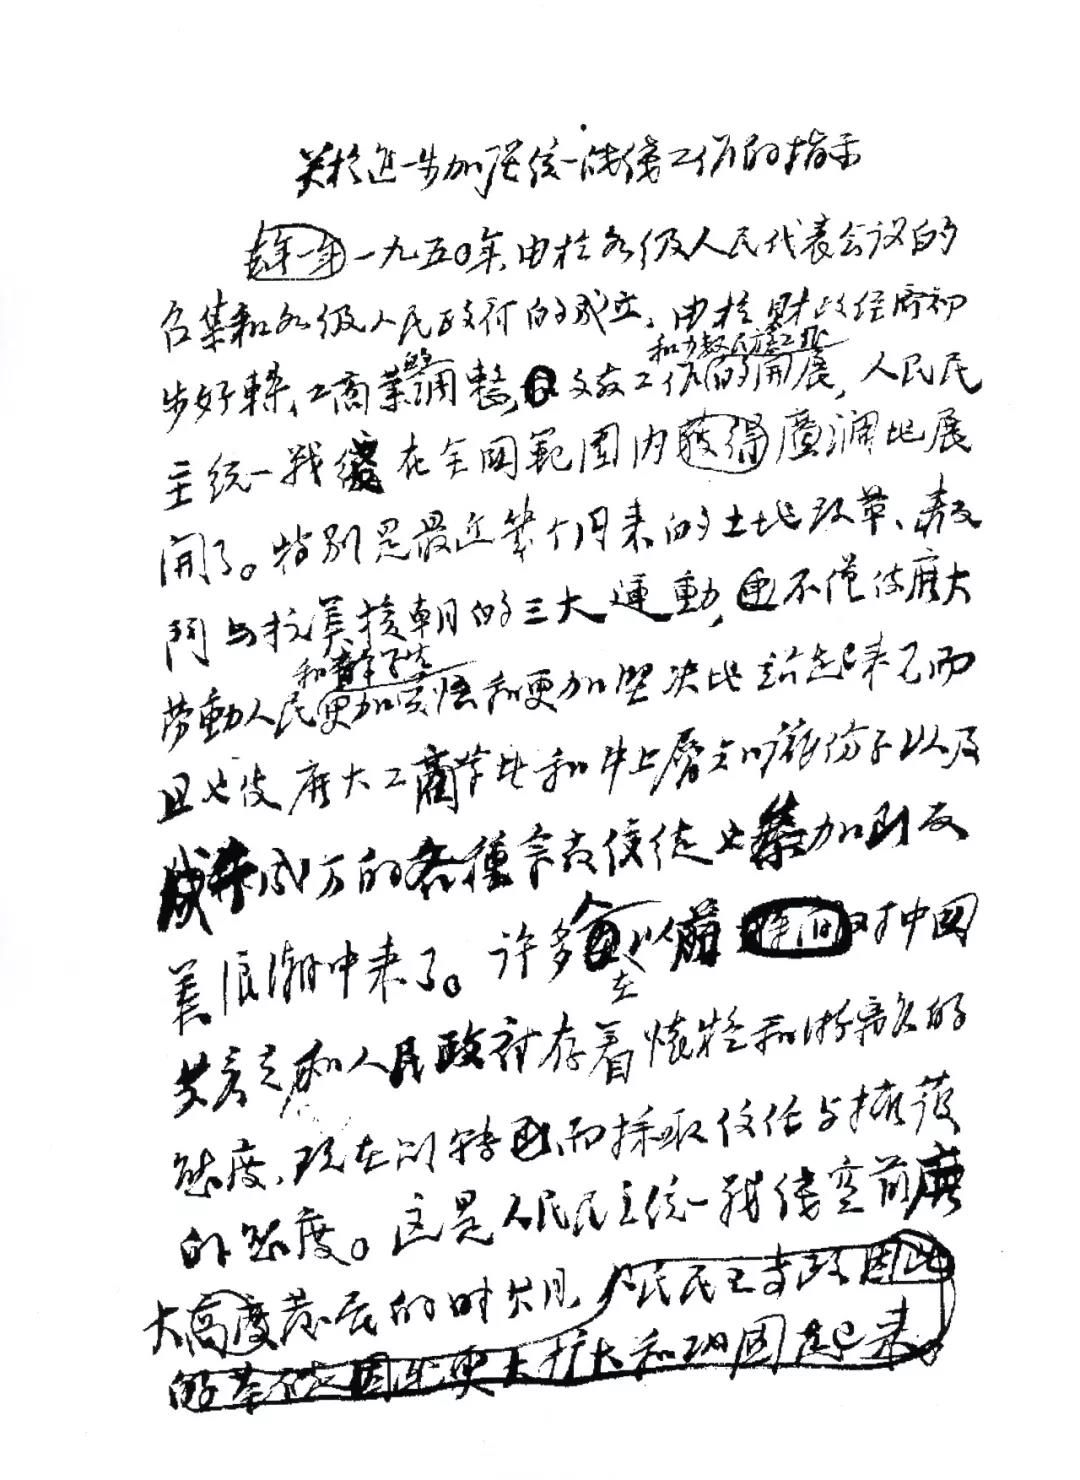 关於进一步加强统一战线工作的指示
去年一年一九五〇年,由於各级人民代表会议的
召集和各级人民政府的成立、由於财政经济初
和少数民族工作
步好转、工商業的调整,文教工作的開展,人民民
主统一战线在全国範围内获得廣泛地展
開了。特别是最近幾个月来的土地改革、
与抗美援朝的三大運動,不僅使廣大
和青年学生
劳動人民更加觉悟和更加坚决地站起来了而
且也使廣大工商業者和中上層知识份子以及
成千成万的各種宗教信徒也参加到反
美浪潮中来了。许多人以前对中国
在
共产党和人民政府存着怀疑和游离的
態度、现在则转而採取信任与拥护
的態度。这是人民民主统一战线空前廣
大高度发展的时期,人民民主专政因此
的基础因此更大扩大和巩固起来。